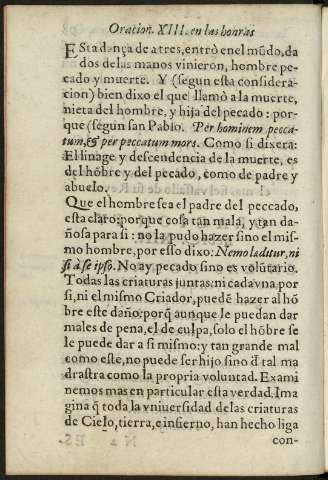 Oracion. XIII. en las honras
ESta dança de a tres, entrò en el mũdo, da
dos de las manos vinieron, hombre pe-
cado y muerte. Y (segun esta considera-
cion) bien dixo el que llamò a la muerte,
nieta del hombre, y hija del pecado: por-
que (segun san Pablo. Per hominem pecca-
tum, & per peccatum mors. Como si dixera:
El linage y descendencia de la muerte, es
del hõbre y del pecado, como de padre y
abuelo.
Que el hombre sea el padre del peccado,
esta claro: porque cosa tan mala, y tan da-
ñosa para si: no la pudo hazer sino el mis-
mo hombre, por esso dixo: Nemo læditur, ni
si à se ipso. No ay pecado sino es volũtario.
Todas las criaturas juntas: ni cada vna por
si, ni el mismo Criador, puedẽ hazer al hõ
bre este daño: porq̃ aunque le puedan dar
males de pena, el de culpa, solo el hõbre se
le puede dar a si mismo: y tan grande mal
como este, no puede ser hijo sino d̃ tal ma
drastra como la propria voluntad. Exami
nemos mas en particular esta verdad. Ima
gina q̃ toda la vniuersidad de las criaturas
de Cielo, tierra, e infierno, han hecho liga
con-